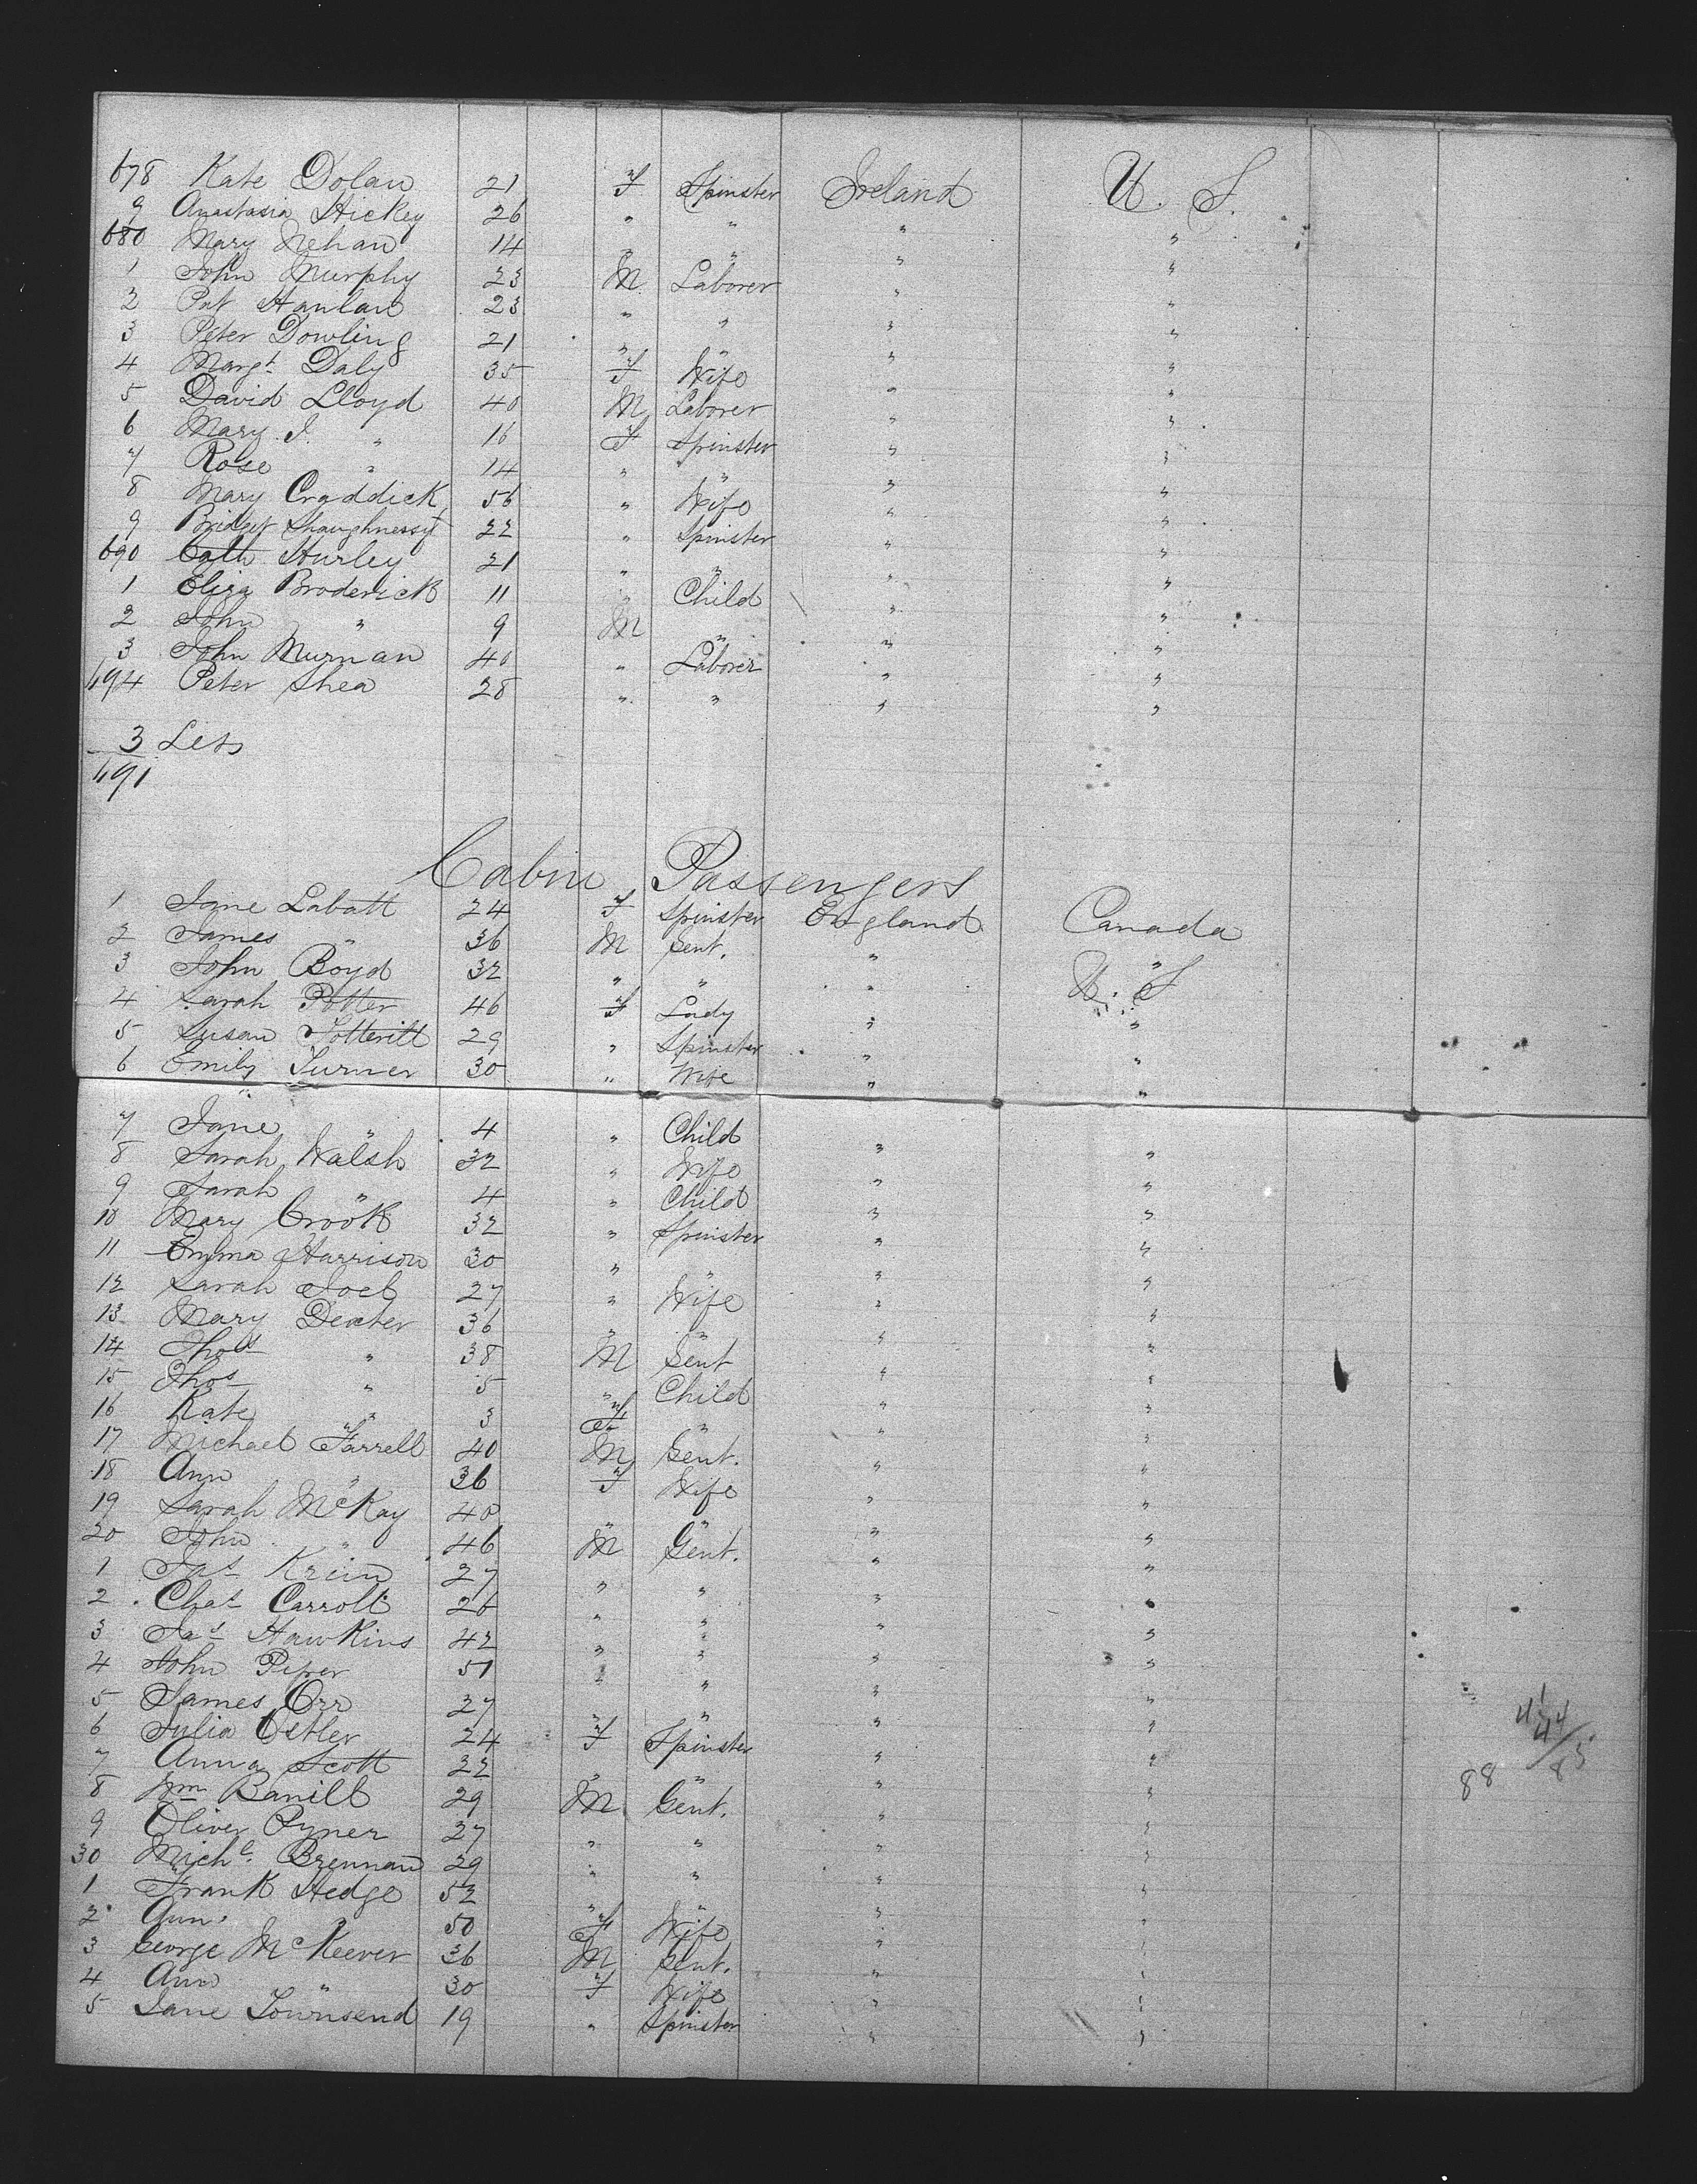 678 Kate Dolan 21 F Spinster Ireland U. S.
9 Anastasia Hickey 26 " " " "
680 Mary Nehan 14 " " " "
1 John Murphy 23 M Laborer " "
2 Pat Hanlan 23 " " " "
3 Peter Dowling 21 " " " "
4 Margt Daly 35 F Wife " "
5 David Lloyd 40 M Laborer " "
6 Mary J. " 16 F Spinster " "
7 Rose " 14 " " " "
8 Mary Craddick 56 " Wife " "
9 Bridget Shaughnessy 22 " Spinster " "
690 Cath Hurley 21 " " " "
1 Eliza Broderick 11 " Child " "
2 John " 9 M " " "
3 John Murnan 40 " Laborer " "
694 Peter Shea 28 " " " "
3 Less
691
Cabin Passengers
1 Jane Labatt 24 F Spinster England Canada
2 James " 36 M Gent. " "
3 John Boyd 32 " " " U. S
4 Sarah Potter 46 F Lady " "
5 Susan 29 " Spinster " "
6 Emily Turner 30 " Wife " "
7 Jane " 4 " Child " "
8 Sarah Walsh 32 " Wife " "
9 Sarah " 4 " Child " "
10 Mary Crook 32 " Spinster " "
11 Emma Harrison 30 " " " "
12 Sarah Joel 27 " Wife " "
13 Mary Dexter 36 " " " "
14 Thos " 38 M Gent " "
15 Thos " 5 " Child " "
16 Kate " 3 F " " "
17 Michael Farrell 40 M Gent. " "
18 Ann " 36 F Wife " "
19 Sarah McKay 40 " " " "
20 John " 46 M Gent. " "
1 Jas 27 " " " "
2 Chas Carroll 26 " " " "
3 Jas Hawkins 42 " " " "
4 John Piper 51 " " " "
5 James Orr 27 " " " "
6 Julia Ostler 24 F Spinster " "
7 Anna Scott 22 " " " "
8 Wm Banill 29 M Gent. " "
9 Oliver Ryner 27 " " " "
30 Michl. Brennan 29 " " " "
1 Frank Hedge 52 " " " "
2 Ann " 50 F Wife " "
3 George McKeever 36 M Gent. " "
4 Ann " 30 F Wife " "
5 Jane Townsend 19 " Spinster " "
88